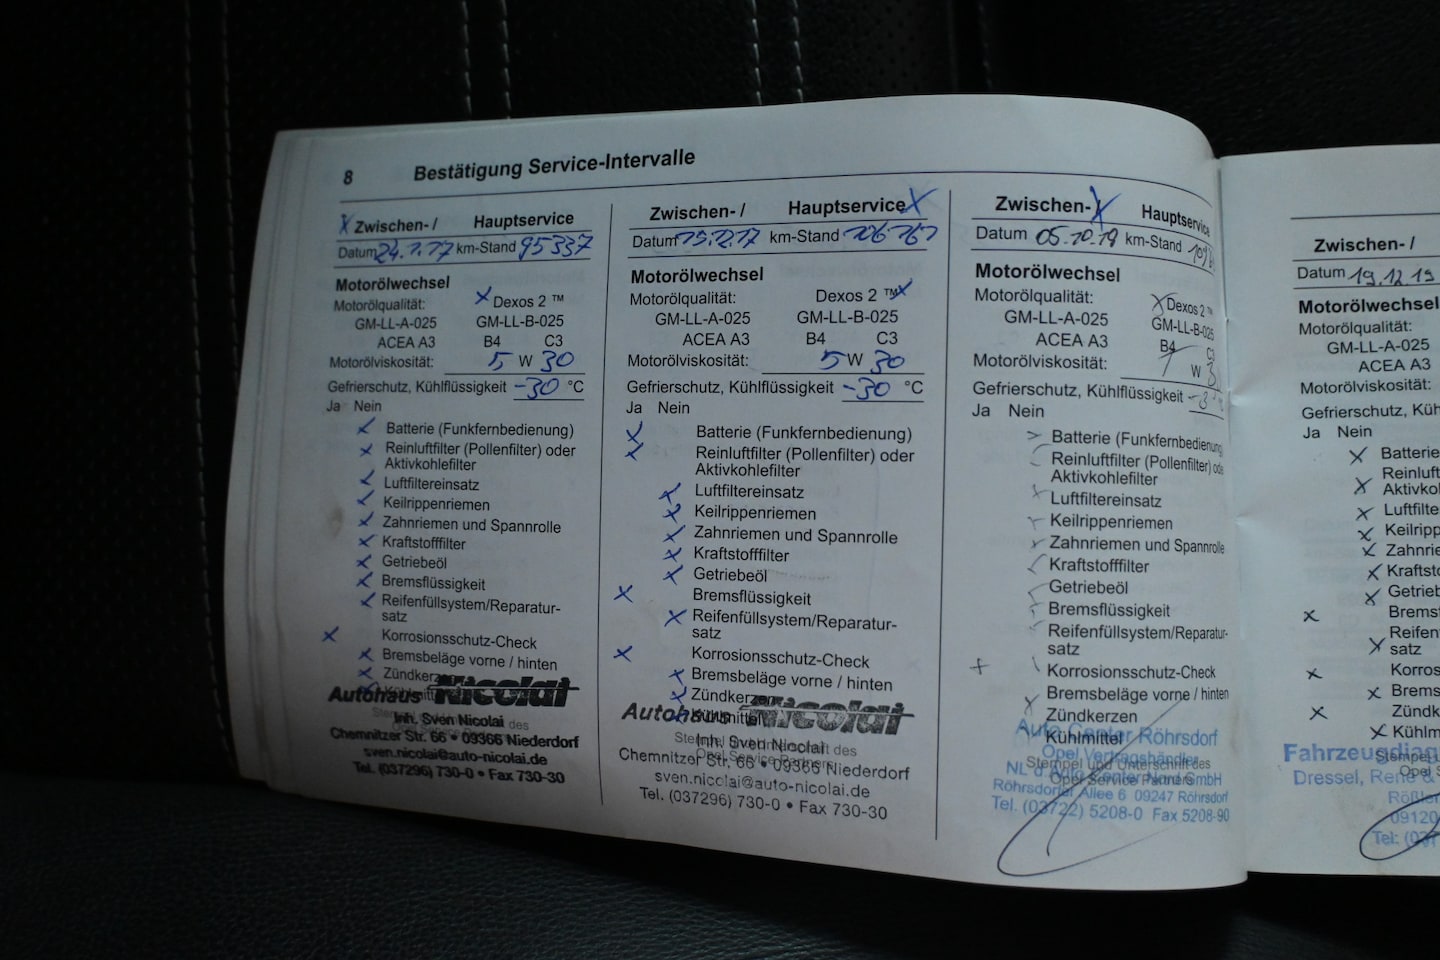 8 Bestätigung Service-Intervalle
X Zwischen- / Hauptservice
Datum 24.1.17 km-Stand 95337
Motorölwechsel
Motorölqualität: X Dexos 2 ™
GM-LL-A-025 GM-LL-B-025
ACEA A3 B4 C3
Motorölviskosität: 5 W 30
Gefrierschutz, Kühlflüssigkeit -30 °C
Ja Nein
X Batterie (Funkfernbedienung)
X Reinluftfilter (Pollenfilter) oder
Aktivkohlefilter
X Luftfiltereinsatz
X Keilrippenriemen
X Zahnriemen und Spannrolle
X Kraftstofffilter
X Getriebeöl
X Bremsflüssigkeit
X Reifenfüllsystem/Reparatur-
satz
X Korrosionsschutz-Check
X Bremsbeläge vorne / hinten
X Zündkerzen
Autohaus Nicolai
Inh. Sven Nicolai
Chemnitzer Str. 66 • 09366 Niederdorf
sven.nicolai@auto-nicolai.de
Tel. (037296) 730-0 • Fax 730-30
Zwischen- / Hauptservice X
Datum km-Stand
Motorölwechsel
Motorölqualität: Dexos 2 ™ X
GM-LL-A-025 GM-LL-B-025
ACEA A3 B4 C3
Motorölviskosität: 5 W 30
Gefrierschutz, Kühlflüssigkeit -30 °C
Ja Nein
X Batterie (Funkfernbedienung)
X Reinluftfilter (Pollenfilter) oder
Aktivkohlefilter
X Luftfiltereinsatz
X Keilrippenriemen
X Zahnriemen und Spannrolle
X Kraftstofffilter
X Getriebeöl
X Bremsflüssigkeit
X Reifenfüllsystem/Reparatur-
satz
X Korrosionsschutz-Check
X Bremsbeläge vorne / hinten
X Zündkerzen
Kühlmittel
Autohaus Nicolai
Stempel und Unterschrift des
Opel Service Partners
Inh. Sven Nicolai
Chemnitzer Str. 66 • 09366 Niederdorf
sven.nicolai@auto-nicolai.de
Tel. (037296) 730-0 • Fax 730-30
Zwischen- / X Hauptservice
Datum 05.10.19 km-Stand
Motorölwechsel
Motorölqualität: X Dexos 2 ™
GM-LL-A-025 GM-LL-B-025
ACEA A3 B4 C3
Motorölviskosität: W
Gefrierschutz, Kühlflüssigkeit
Ja Nein
Batterie (Funkfernbedienung
Reinluftfilter (Pollenfilter) ode
Aktivkohlefilter
Luftfiltereinsatz
Keilrippenriemen
Zahnriemen und Spannrolle
Kraftstofffilter
Getriebeöl
Bremsflüssigkeit
Reifenfüllsystem/Reparatur-
satz
Korrosionsschutz-Check
Bremsbeläge vorne / hinten
Zündkerzen
Kühlmittel
Auto Center Röhrsdorf
Opel Vertragshändler
Stempel und Unterschrift des
Opel Service Partners
NL d. Auto Center Nord GmbH
Röhrsdorfer Allee 6 09247 Röhrsdorf
Tel. (03722) 5208-0 Fax 5208-90
Zwischen- /
Datum 19.12.19
Motorölwechsel
Motorölqualität:
GM-LL-A-025
ACEA A3
Motorölviskosität:
Gefrierschutz, Küh
Ja Nein
X Batterie
X Reinluf
Aktivko
X Luftfilte
X Keilripp
X Zahnrie
X Kraftsto
X Getrieb
X Bremsf
X Reifen
satz
X Korros
X Brems
X Zündk
X Kühlm
Fahrzeugdiag
Dressel, René &
Rößler
09120
Tel: (037